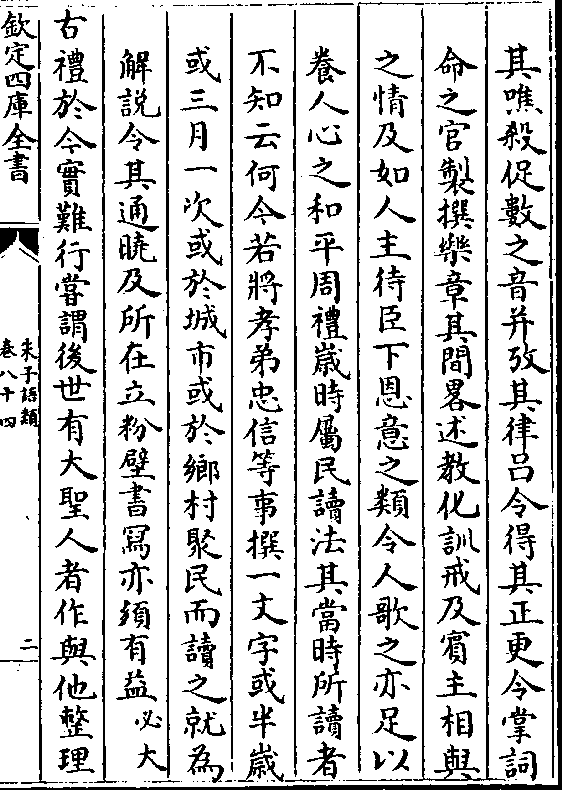 其噍殺促數之音并攷其律吕令得其正更令掌詞
命之官製撰樂章其間畧述教化訓戒及賓主相與
之情及如人主待臣下恩意之類令人歌之亦足以
養人心之和平周禮嵗時屬民讀法其當時所讀者
不知云何今若將孝弟忠信等事撰一文字或半嵗
或三月一次或於城市或於鄉村聚民而讀之就為
解説令其通曉及所在立粉壁書冩亦須有益必大
古禮於今實難行嘗謂後世有大聖人者作與他整理
欽定四庫全書
朱子語類
卷八十四
二